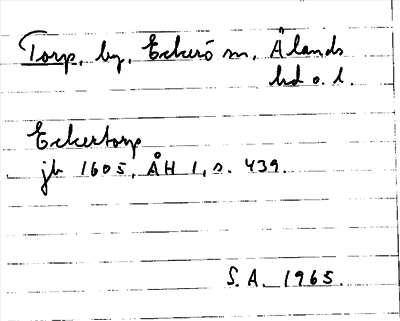 Torp, by, Eckerö sn, Ålands
hd o. l.
Eckertorp
jb 1605, ÅH 1, s. 439.
S. A. 1965.